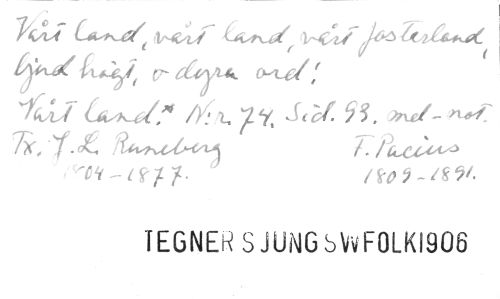 Vårt land, vårt land, vårt fosterland,
ljud högt, o dyra ord!
Vårt land.* N:r. 74. Sid. 93. mel-not.
Tx. J. L. Runeberg F. Pacius
1804-1877. 1809-1891.
TEGNER SJUNG SVVFOLK1906